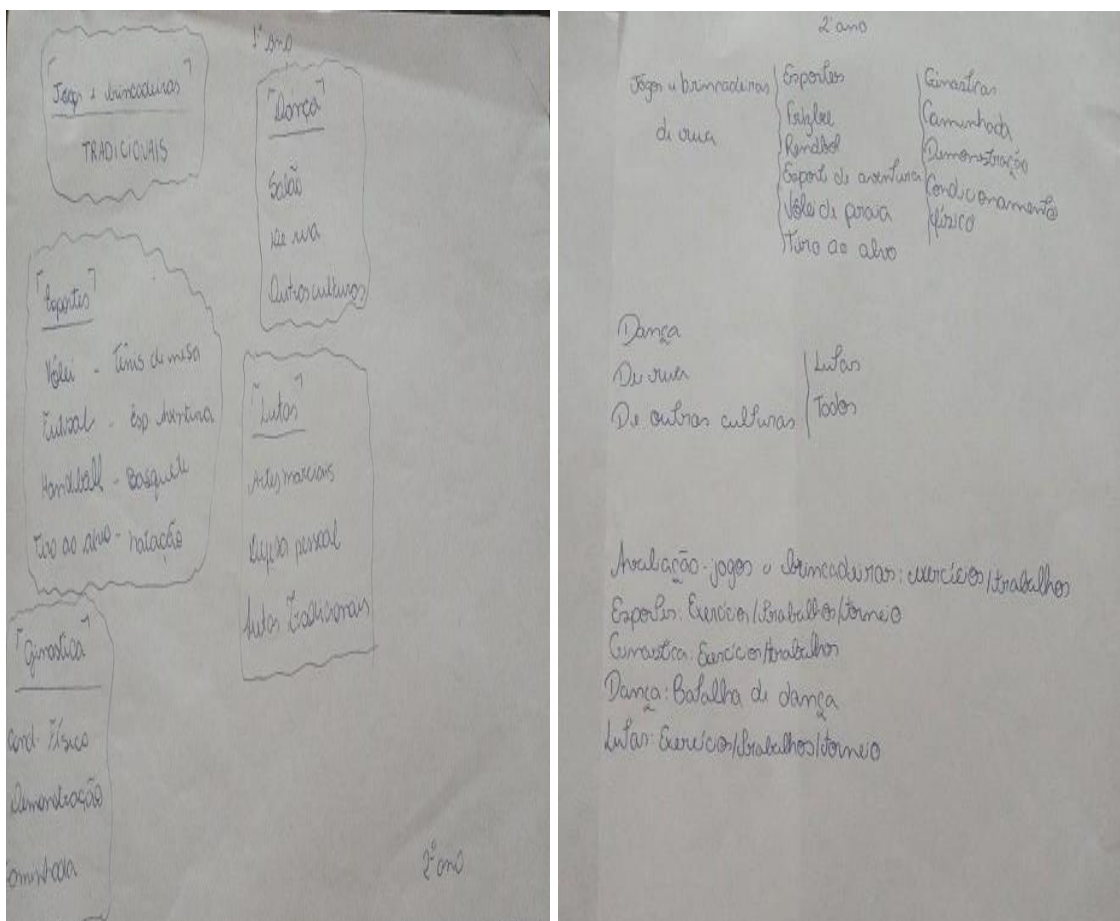 1º ano
Jogos e brincadeiras
TRADICIONAIS
"Dança"
Salão
De rua
Outras culturas
"Esportes"
Vôlei - Tênis de mesa
Futsal - Esp Aventura
Handball - Basquete
Tiro ao alvo - natação
"Lutas"
Artes marciais
Defesa pessoal
Lutas Tradicionais
"Ginastica"
Cond. Físico
Demonstração
Caminhada
2º ano
2º ano
Jogos e brincadeiras
de rua
Esportes
Handbol
Esporte de aventura
Vôlei de praia
Tiro ao alvo
Ginasticas
Caminhada
Demonstração
Condicionamento
físico
Dança
De rua
De outras culturas
Lutas
Todos
Avaliação - jogos e brincadeiras: exercícios/trabalhos
Esportes: Exercícios/trabalhos/torneio
Ginastica: Exercícios/trabalhos
Dança: Batalha de dança
Lutas: Exercícios/trabalhos/torneio